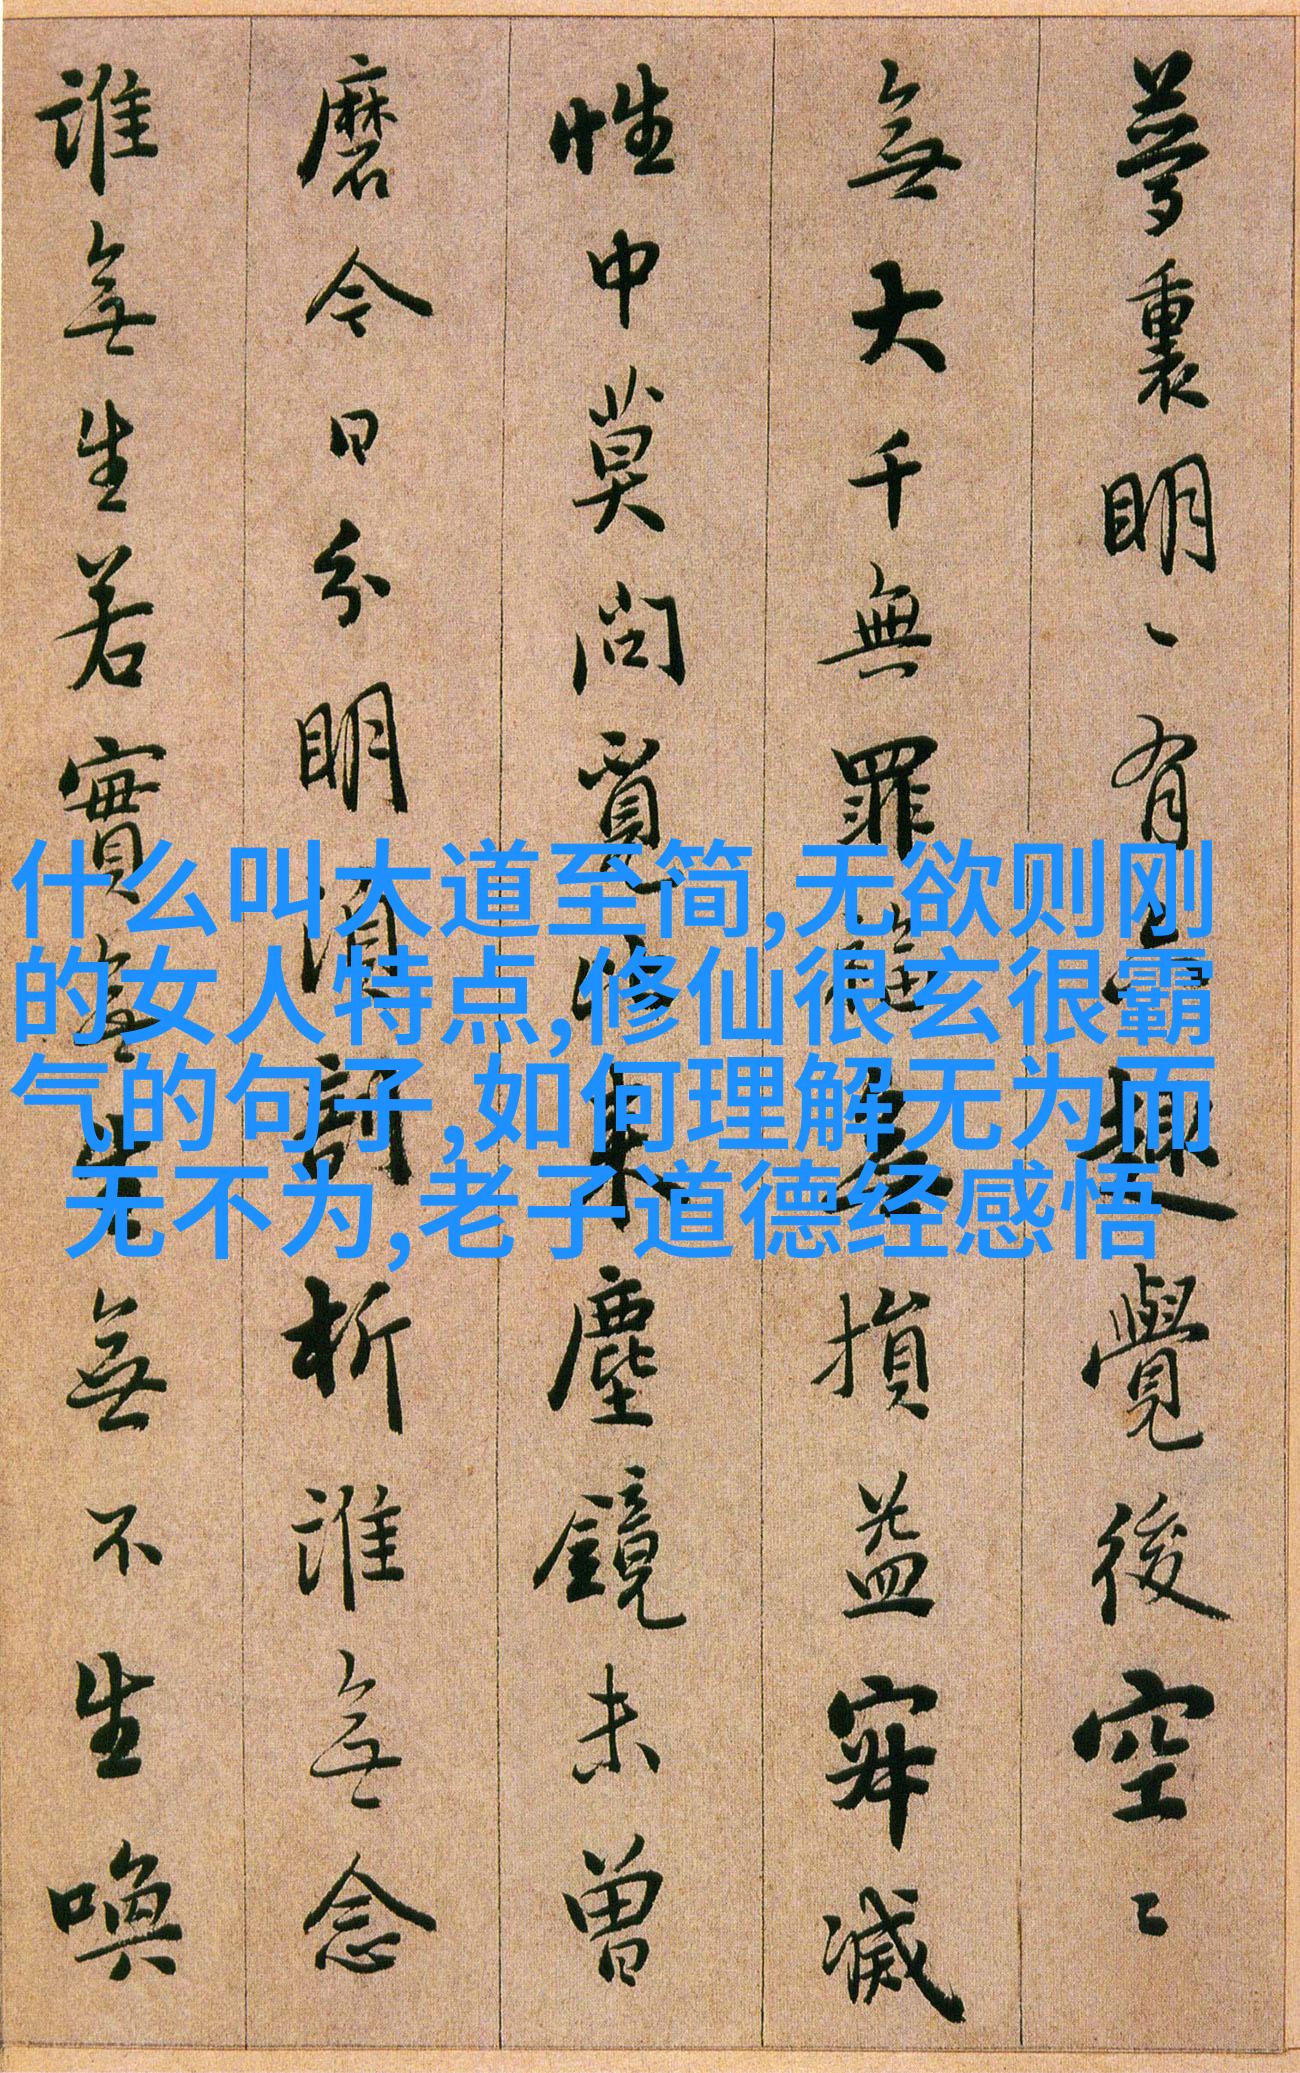 夢裏明〻有六趣覺後空〻
無大千無罪福無損益寂滅
性中莫問覓比来塵鏡未曾
磨今日分明須剖析誰無念
誰無生若實無生無不生喚
什么叫大道至简,无欲则刚
的女人特点,修仙很玄很霸
气的句子,如何理解无为而
无不为,老子道德经感悟